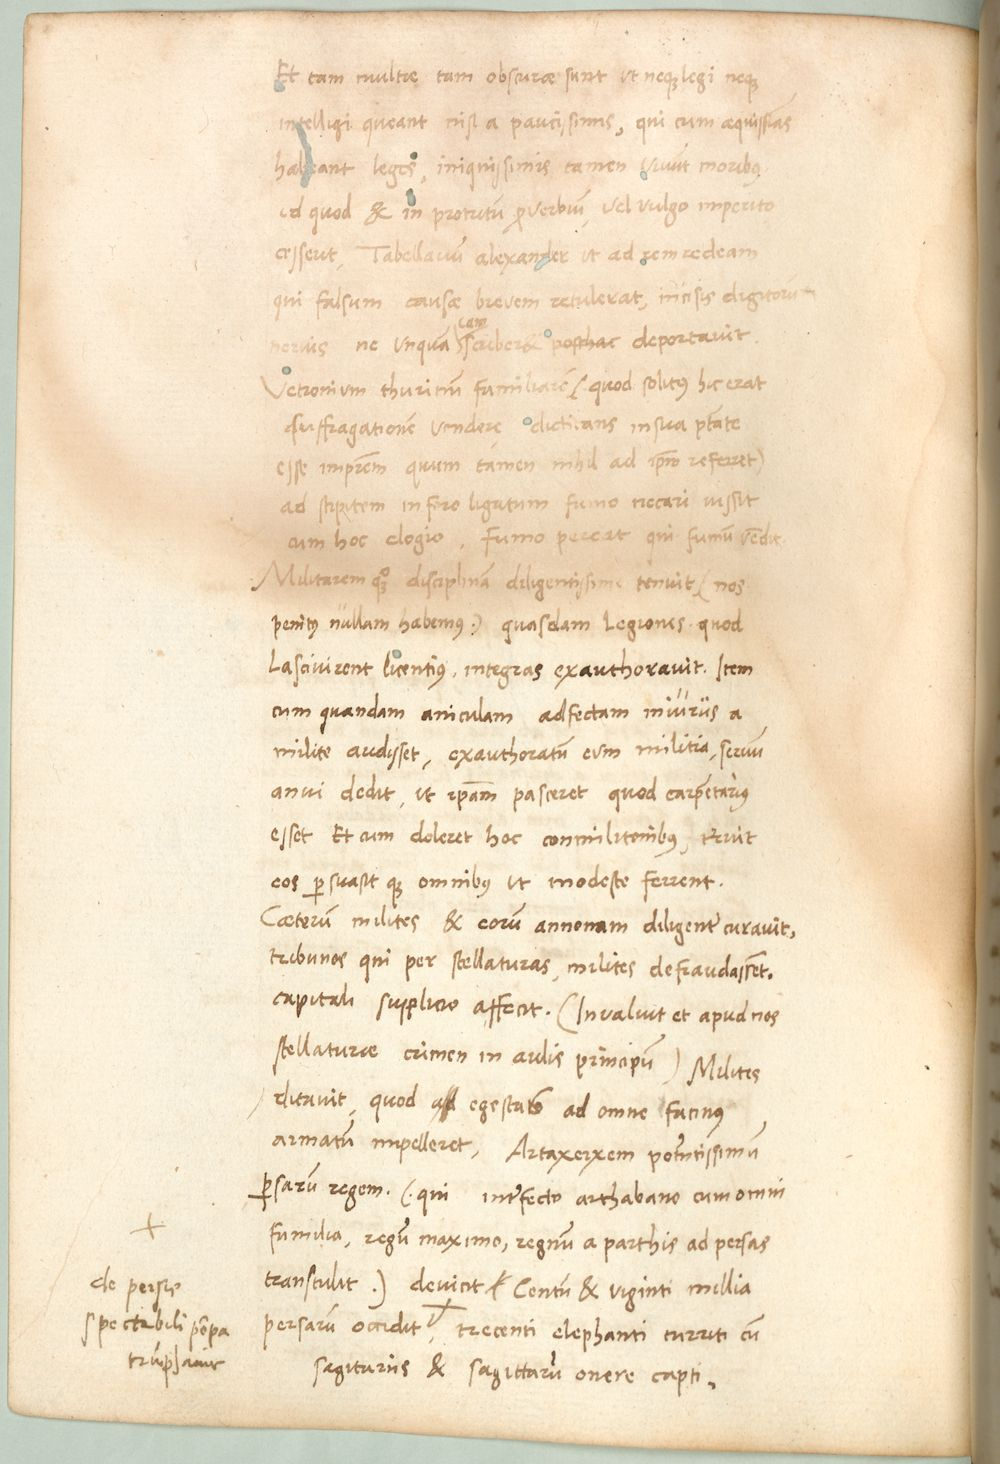 Et tam multæ tam obscuræ sunt ut neq; legi neq;
intelligi queant nisi a paucissimis, qui cum æquissīas
habeant leges, iniquissimis tamen vivūt moribq
id quod & in protritū ꝓverbiū, vel vulgo imperito
cesserit, Tabellariū alexander ut ad rem redeam
qui falsum causæ brevem retulerat, incisis digitorum
nervis ne unquā scribere posthac deportavit.
Vetronium thurinū familiarē (quod solitus hic erat
suffragationē vendere dictitans in sua ptāte
esse imprēm quum tamen nihil ad ipm̄ referret)
ad stipitem in foro ligatum fumo necari iussit
cum hoc elogio, Fumo pereat qui fumū vēdit.
Militarem qq; disciplinā diligentissime tenuit, (nos
penitꝰ nullam habemꝰ.) quasdam Legiones quod
Lascivirent licentiꝰ, integras exauthoravit. Item
cum quandam aniculam adfectam iniuriis a
milite audisset, exauthoratū eum militia, servū
anui dedit, ut ipsam pasceret quod carpētariꝰ
esset Et cum doleret hoc commilitonibꝰ, t'ruit
eos ꝑsuasit q; omnibꝰ ut modeste ferrent.
Cæterū milites & eorū annonam diligent' curavit,
tribunos qui per stellaturas, milites defraudassēt,
capitali supplicio affecit. (Invaluit et apud nos
stellaturæ crimen in aulis principū) Milites
ditavit, quod egestate ad omne facinꝰ
armatū impelleret, Artaxerxem potētissimū
ꝑsarū regem. (qui int'fecto arthabano cum omni
familia, regū maximo, regnū a parthis ad persas
transtulit.) devicit Centū & viginti millia
persarū occidit, trecenti elephanti turriti cū
sagitariis & sagittarū onere capti,
+
de persis
spectabili pōpa
triūphavit